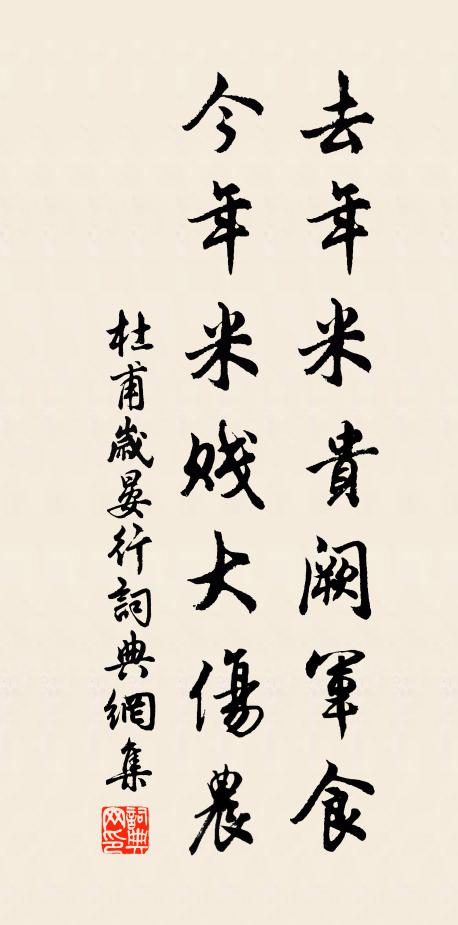 去年米貴闕軍食
今年米賤大傷農
杜甫歲晏行詞典網集
詞典网印